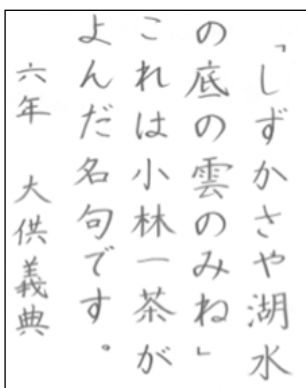 「しずかさや湖水
の底の雲のみね」
これは小林一茶が
よんだ名句です。
六年 大供義典